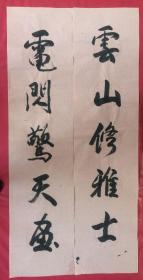 雲山修雅士
電閃驚天画